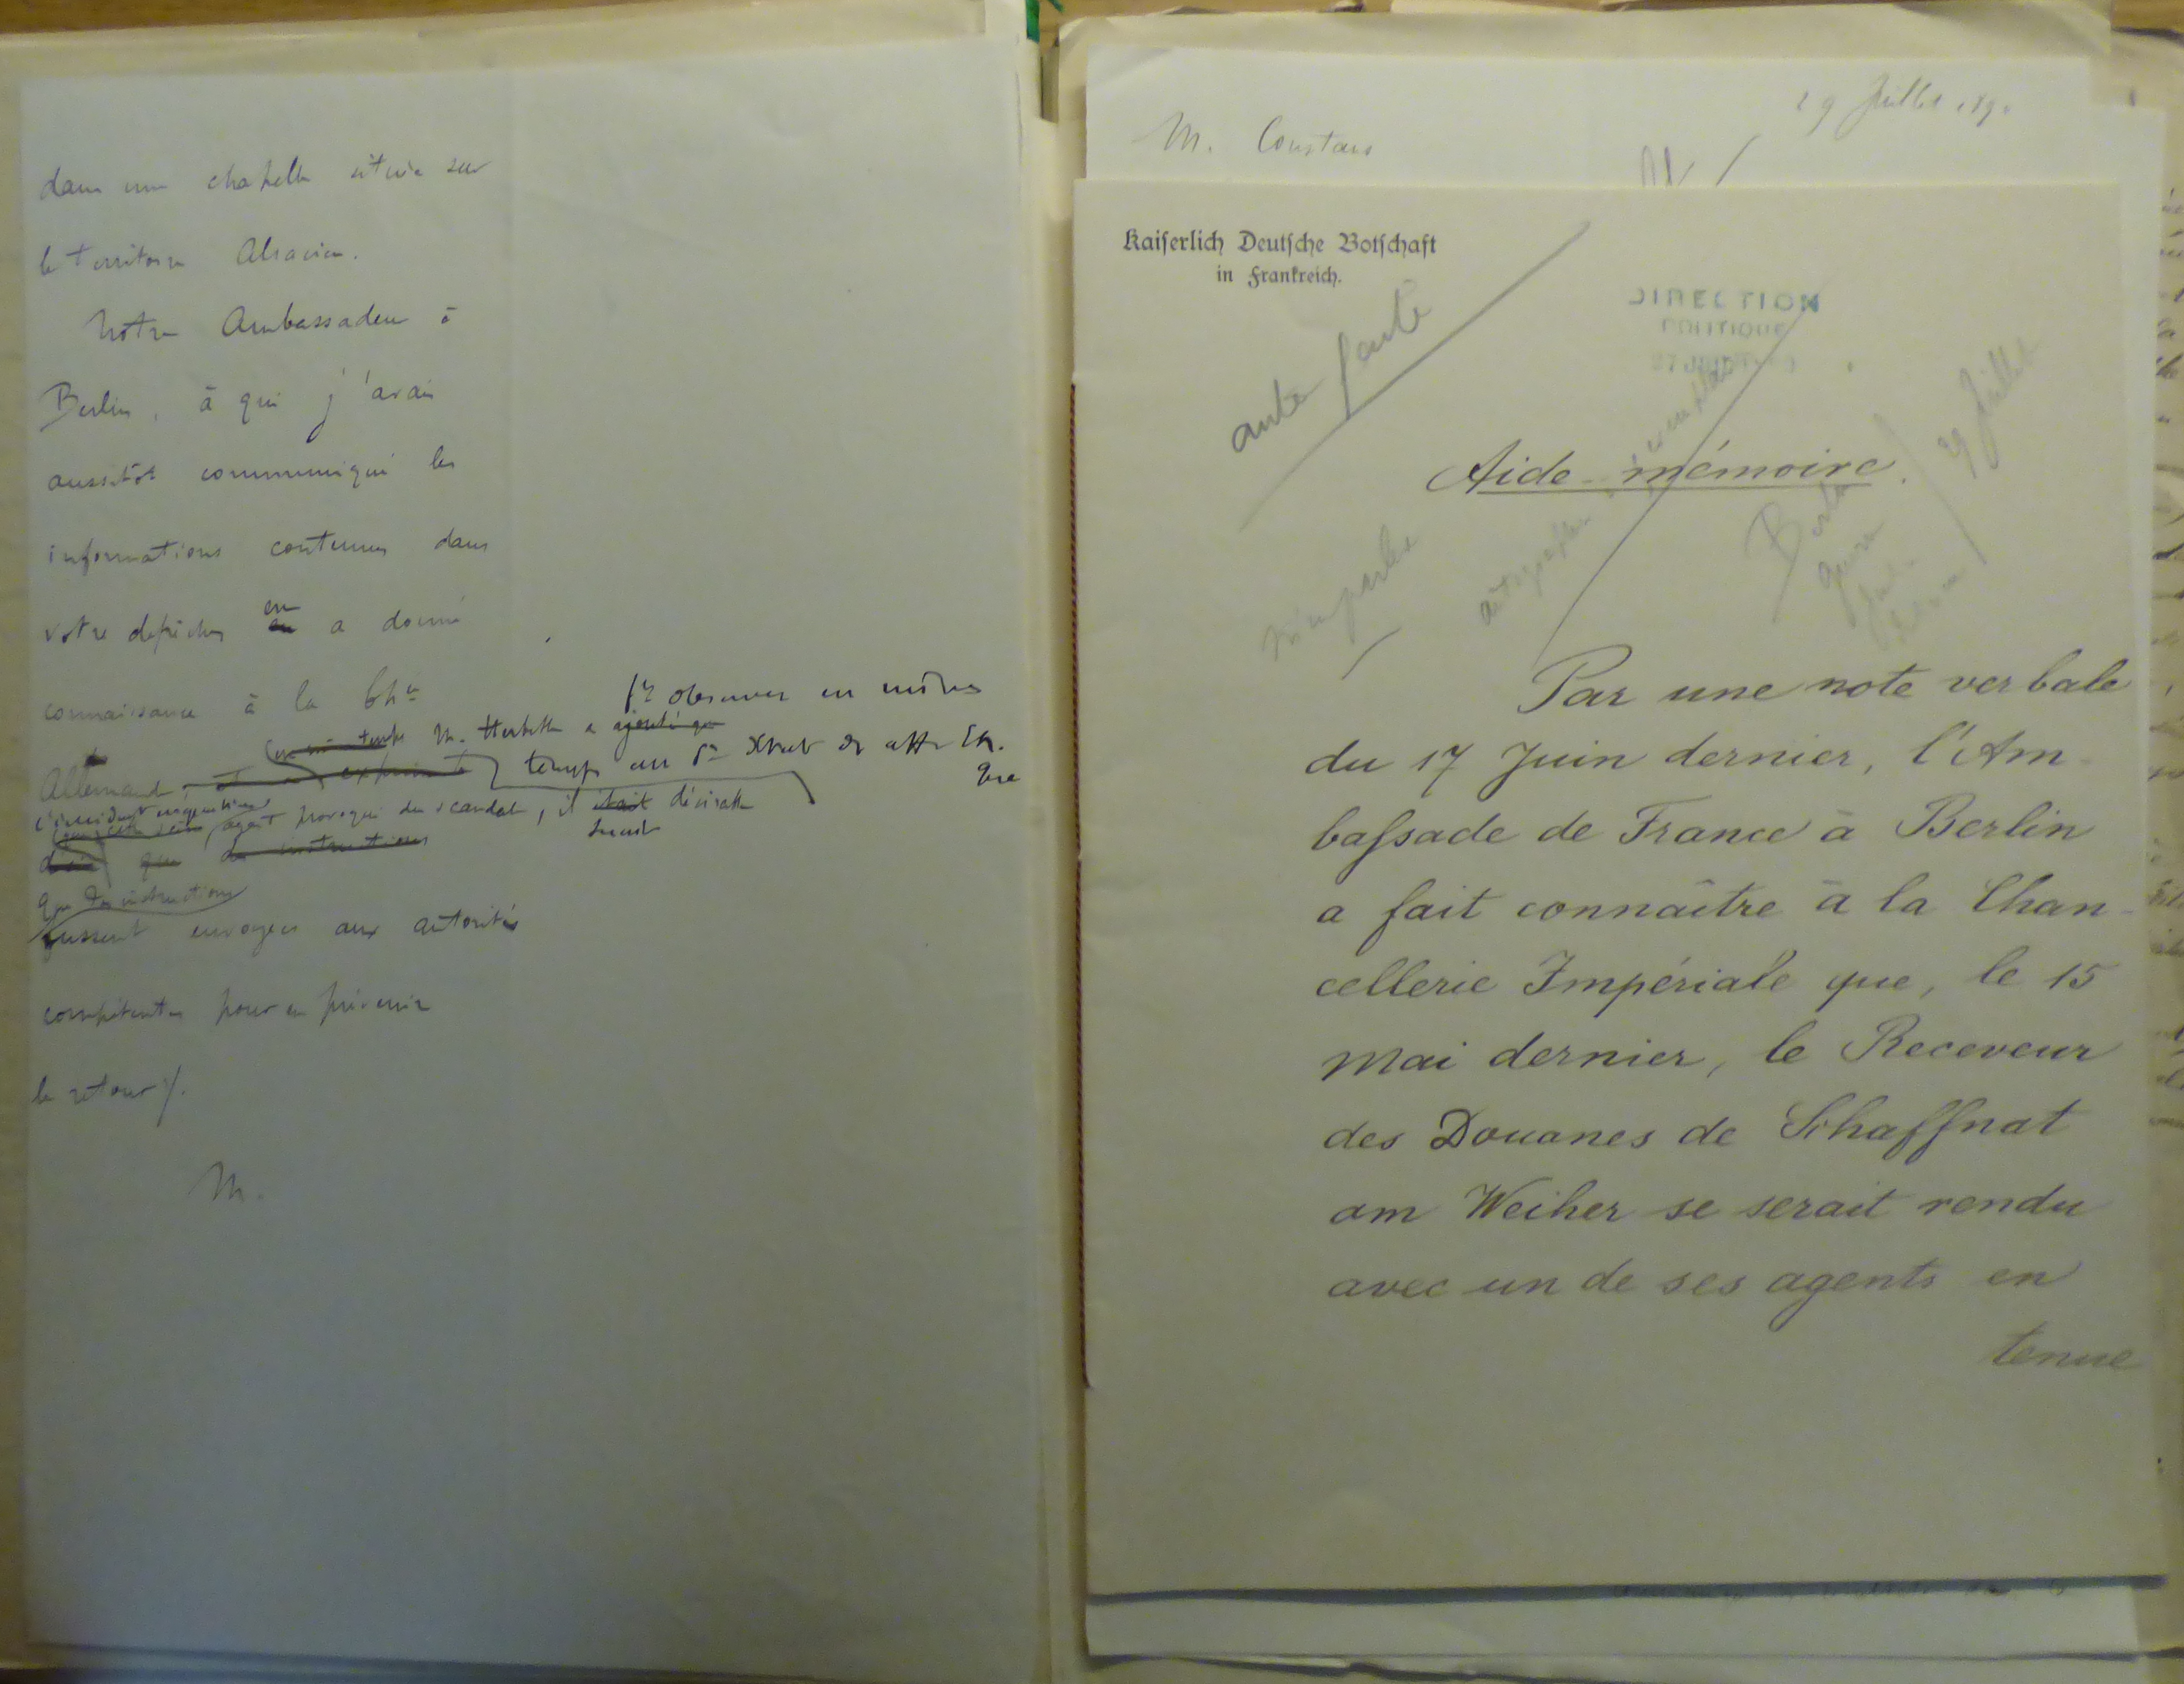 dans une chapelle située sur
le territoire Alsacien.
Notre Ambassadeur à
Berlin, à qui j'avais
aussitôt communiqué les
informations contenues dans
votre dépêche, en a donné
connaissance à la Ch^ie
fr observer en même
M. Herbette a ajouté que
temps au Sre d'Etat des aff. Et.
que
Allemande,
l'incident en question
ayant provoqué du scandale, il était désirable
serait
que des instructions
que des instructions
fussent envoyées aux autorités
compétentes pour en prévenir
le retour ./.
M.
29 Juillet 1890
M. Constans
Kaiserlich Deutsche Botschaft
in Frankreich.
DIRECTION
POLITIQUE
27 JUIN
Berlin
29 Juillet
Aide-mémoire.
Par une note verbale
du 17 Juin dernier, l'Am-
bassade de France à Berlin
a fait connaître à la Chan-
cellerie Impériale que, le 15
Mai dernier, le Receveur
des Douanes de Schaffnat
am Weiher se serait rendu
avec un de ses agents en
tenue